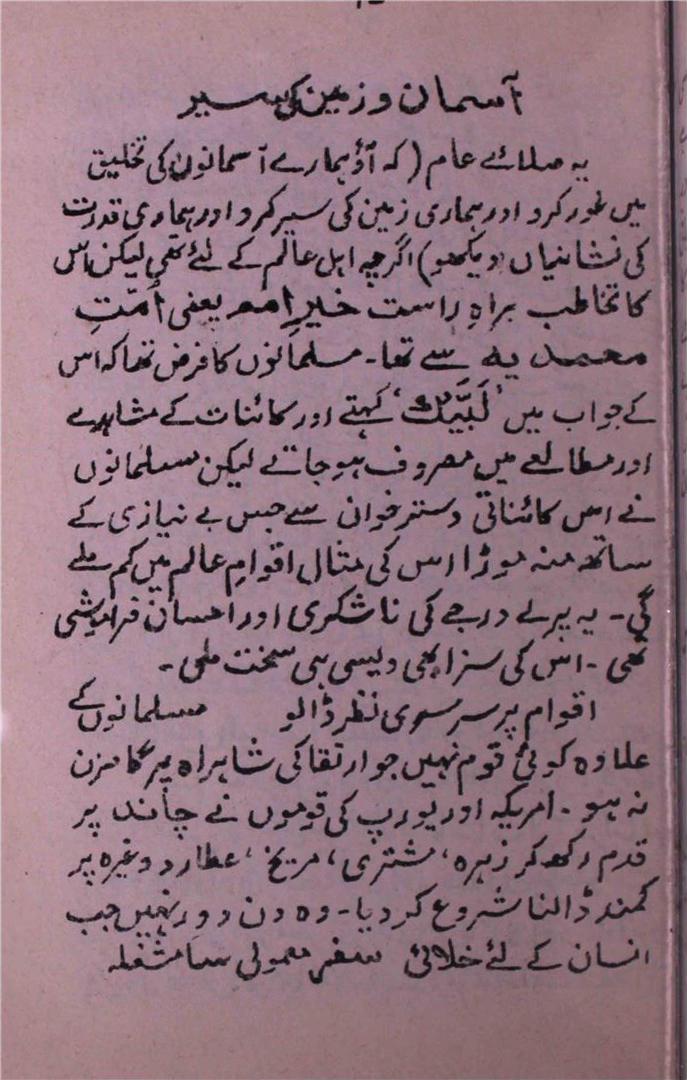 آسمان و زمین کی سیر
یہ صلائے عام (کہ آؤ ہمارے آسمانوں کی تخلیق
میں غور کرو اور ہماری زمین کی سیر کرو اور ہماری قدرت
کی نشانیاں دیکھو) اگرچہ اہل عالم کے لئے تھی لیکن اس
کا تخاطب براہِ راست خیرِ امم یعنی اُمّتِ
محمدیہ سے تھا۔ مسلمانوں کا فرض تھا کہ اس
کے جواب میں ’لَبَّیْک‘ کہتے اور کائنات کے مشاہدے
اور مطالعے میں مصروف ہو جاتے لیکن مسلمانوں
نے اس کائناتی دسترخوان سے جس بے نیازی کے
ساتھ منہ موڑا اس کی مثال اقوامِ عالم میں کم ملے
گی۔ یہ پرلے درجے کی ناشکری اور احسان فراموشی
تھی۔ اس کی سزا بھی ویسی ہی سخت ملی۔
اقوام پر سرسری نظر ڈالو مسلمانوں کے
علاوہ کوئی قوم نہیں جو ارتقا کی شاہراہ پر گامزن
نہ ہو۔ امریکہ اور یورپ کی قوموں نے چاند پر
قدم رکھ کر زہرہ، مشتری، مریخ، عطارد وغیرہ پر
کمند ڈالنا شروع کر دیا۔ وہ دن دور نہیں جب
انسان کے لئے خلائی سفر معمولی سا مشغلہ